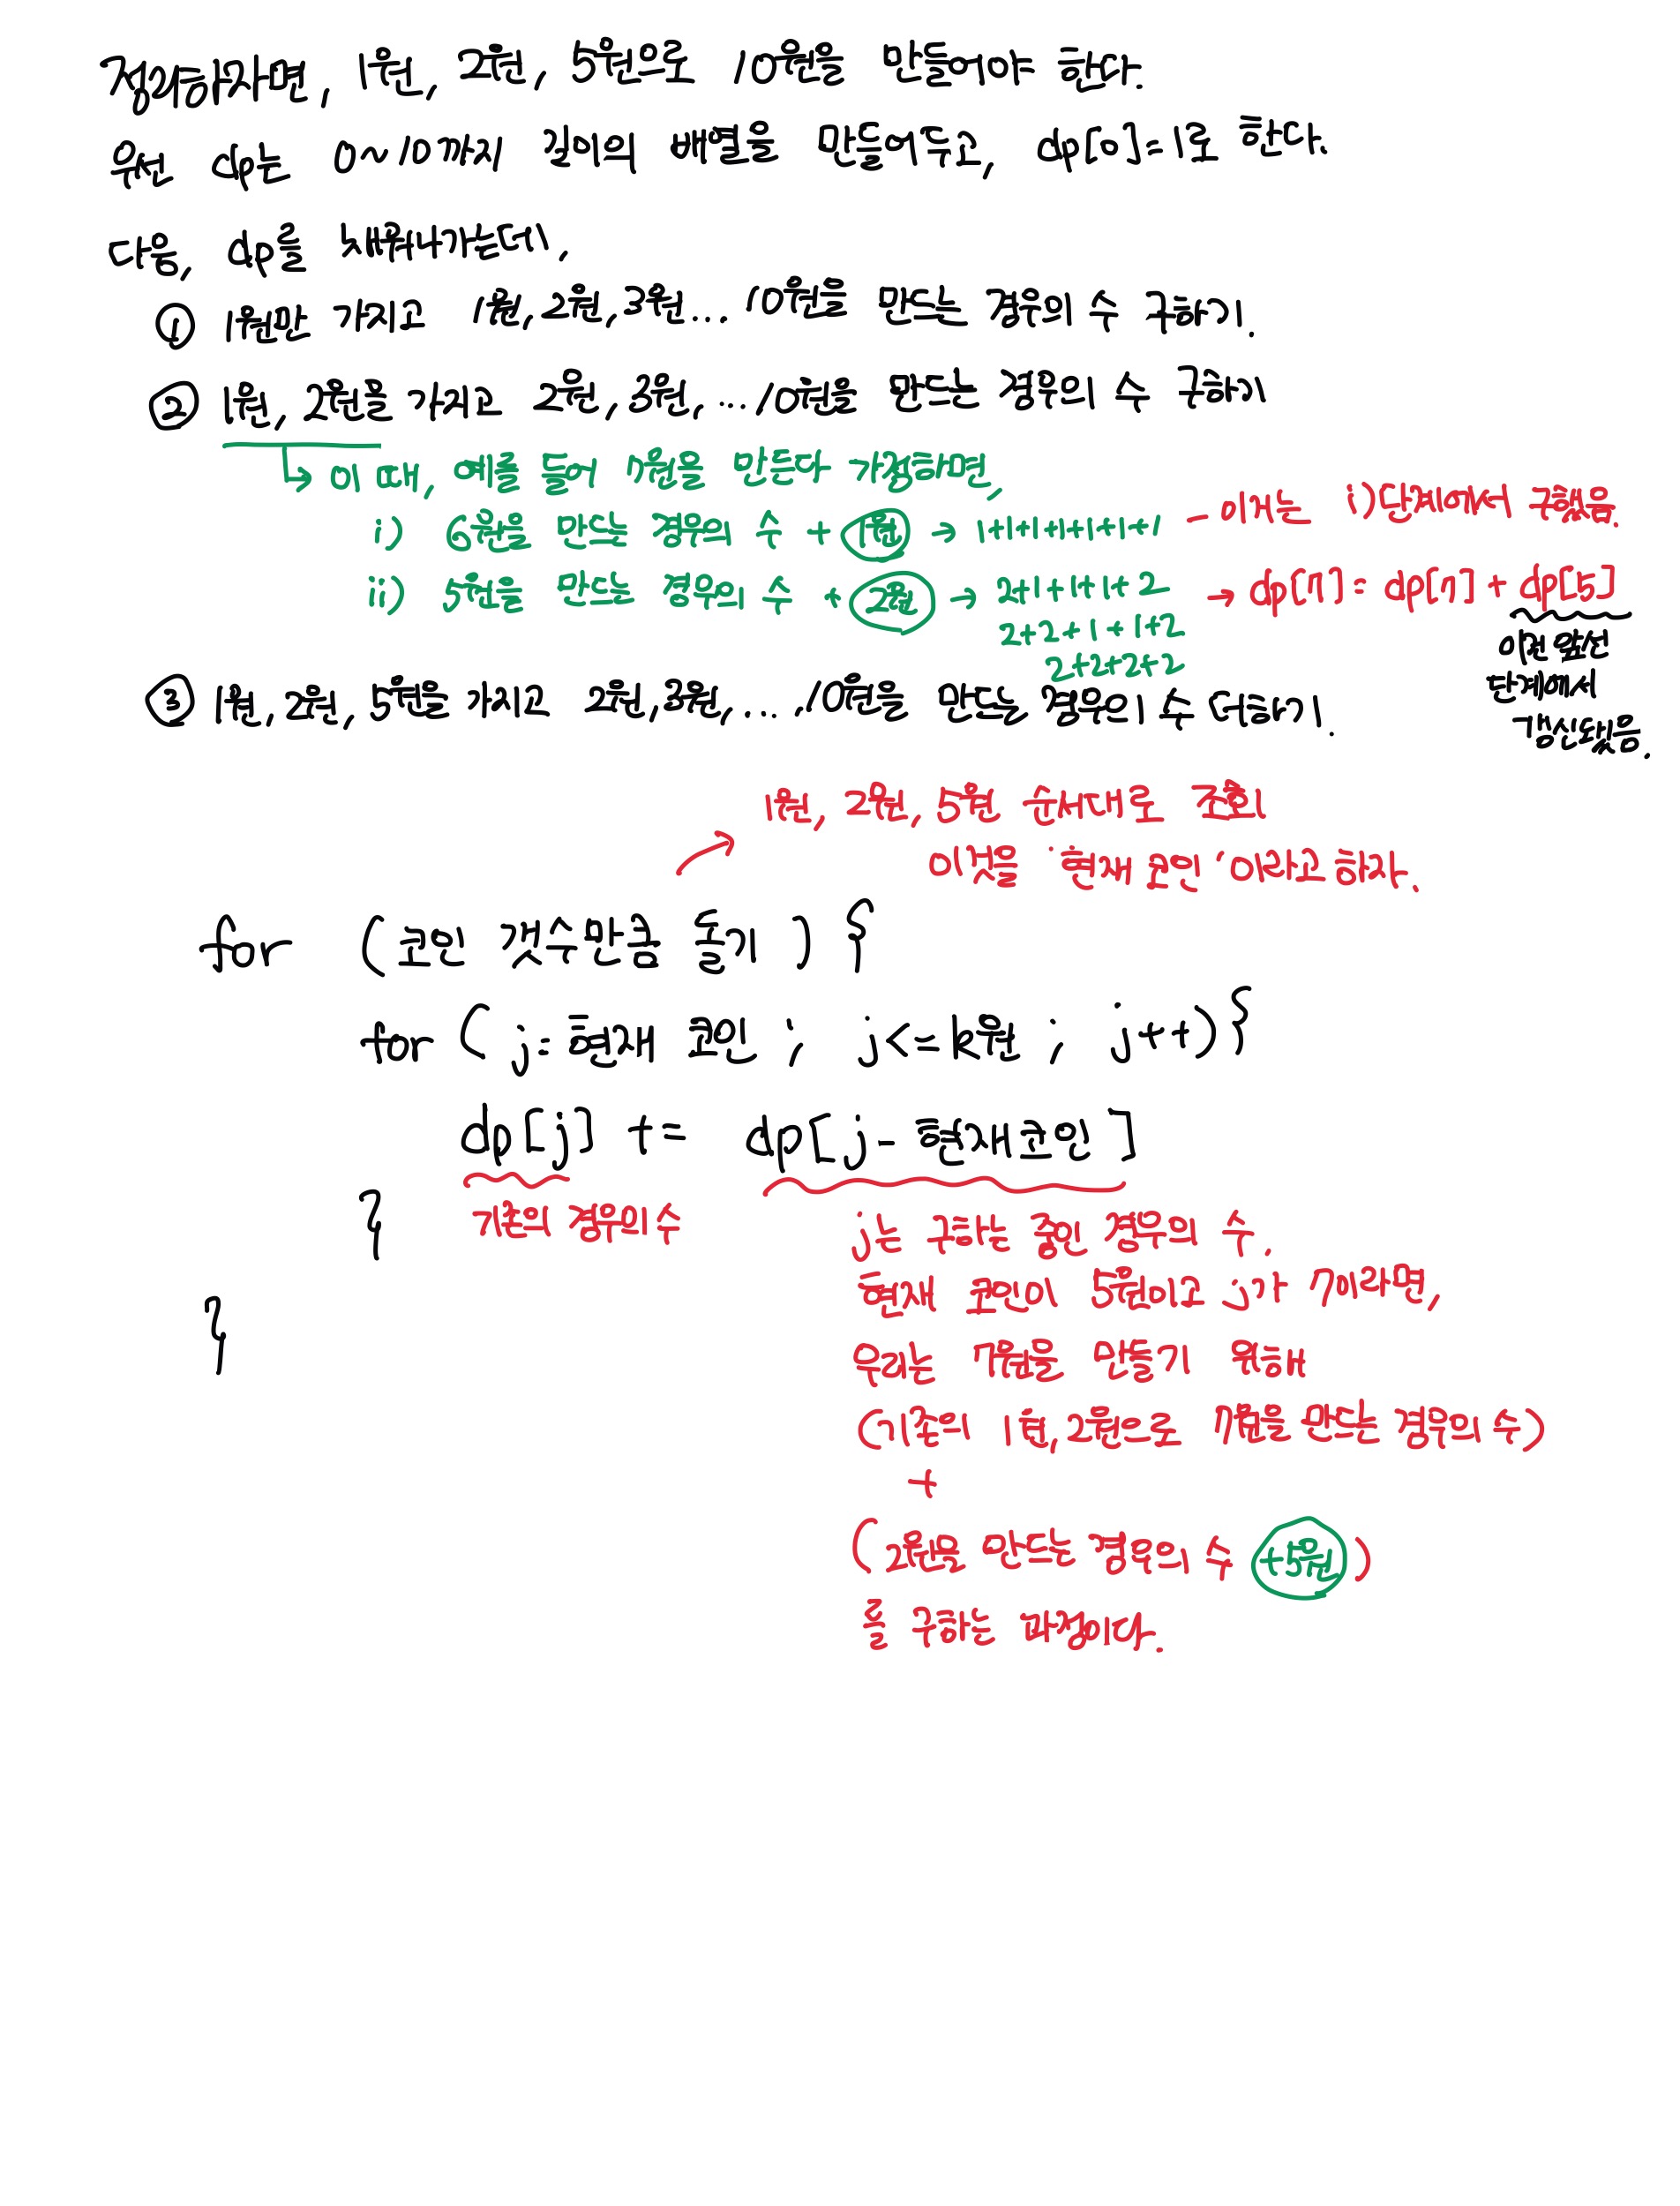 정리하자면, 1원, 2원, 5원으로 10원을 만들어야 한다.
우선 dp는 0~10까지 길이의 배열을 만들어두고, dp[0]=1로 한다.
다음, dp를 채워나가는데,
① 1원만 가지고 1원, 2원, 3원... 10원을 만드는 경우의 수 구하기.
② 1원, 2원을 가지고 2원, 3원, ... 10원을 만드는 경우의 수 구하기
↳ 이 때, 예를 들어 7원을 만든다 가정하면,
i) 6원을 만드는 경우의 수 + 1원 → 1+1+1+1+1+1+1 - 이거는 i)단계에서 구했음.
ii) 5원을 만드는 경우의 수 + 2원 → 2+1+1+1+2 → dp[7] = dp[7] + dp[5]
2+2+1+1+2
2+2+2+2
이건 앞선
단계에서
갱신됐음.
③ 1원, 2원, 5원을 가지고 2원, 3원, ... , 10원을 만드는 경우의 수 더하기.
1원, 2원, 5원 순서대로 조회
이것을 '현재 코인'이라고 하자.
for (코인 갯수만큼 돌기) {
for ( j = 현재 코인 ; j <= k원 ; j++) {
dp[j] += dp[j - 현재코인]
기존의 경우의 수
}
}
j는 구하는 중인 경우의 수.
현재 코인이 5원이고 j가 7이라면,
우리는 7원을 만들기 위해
(기존의 1원, 2원으로 7원을 만드는 경우의 수)
+
(2원을 만드는 경우의 수 +5원)
를 구하는 과정이다.